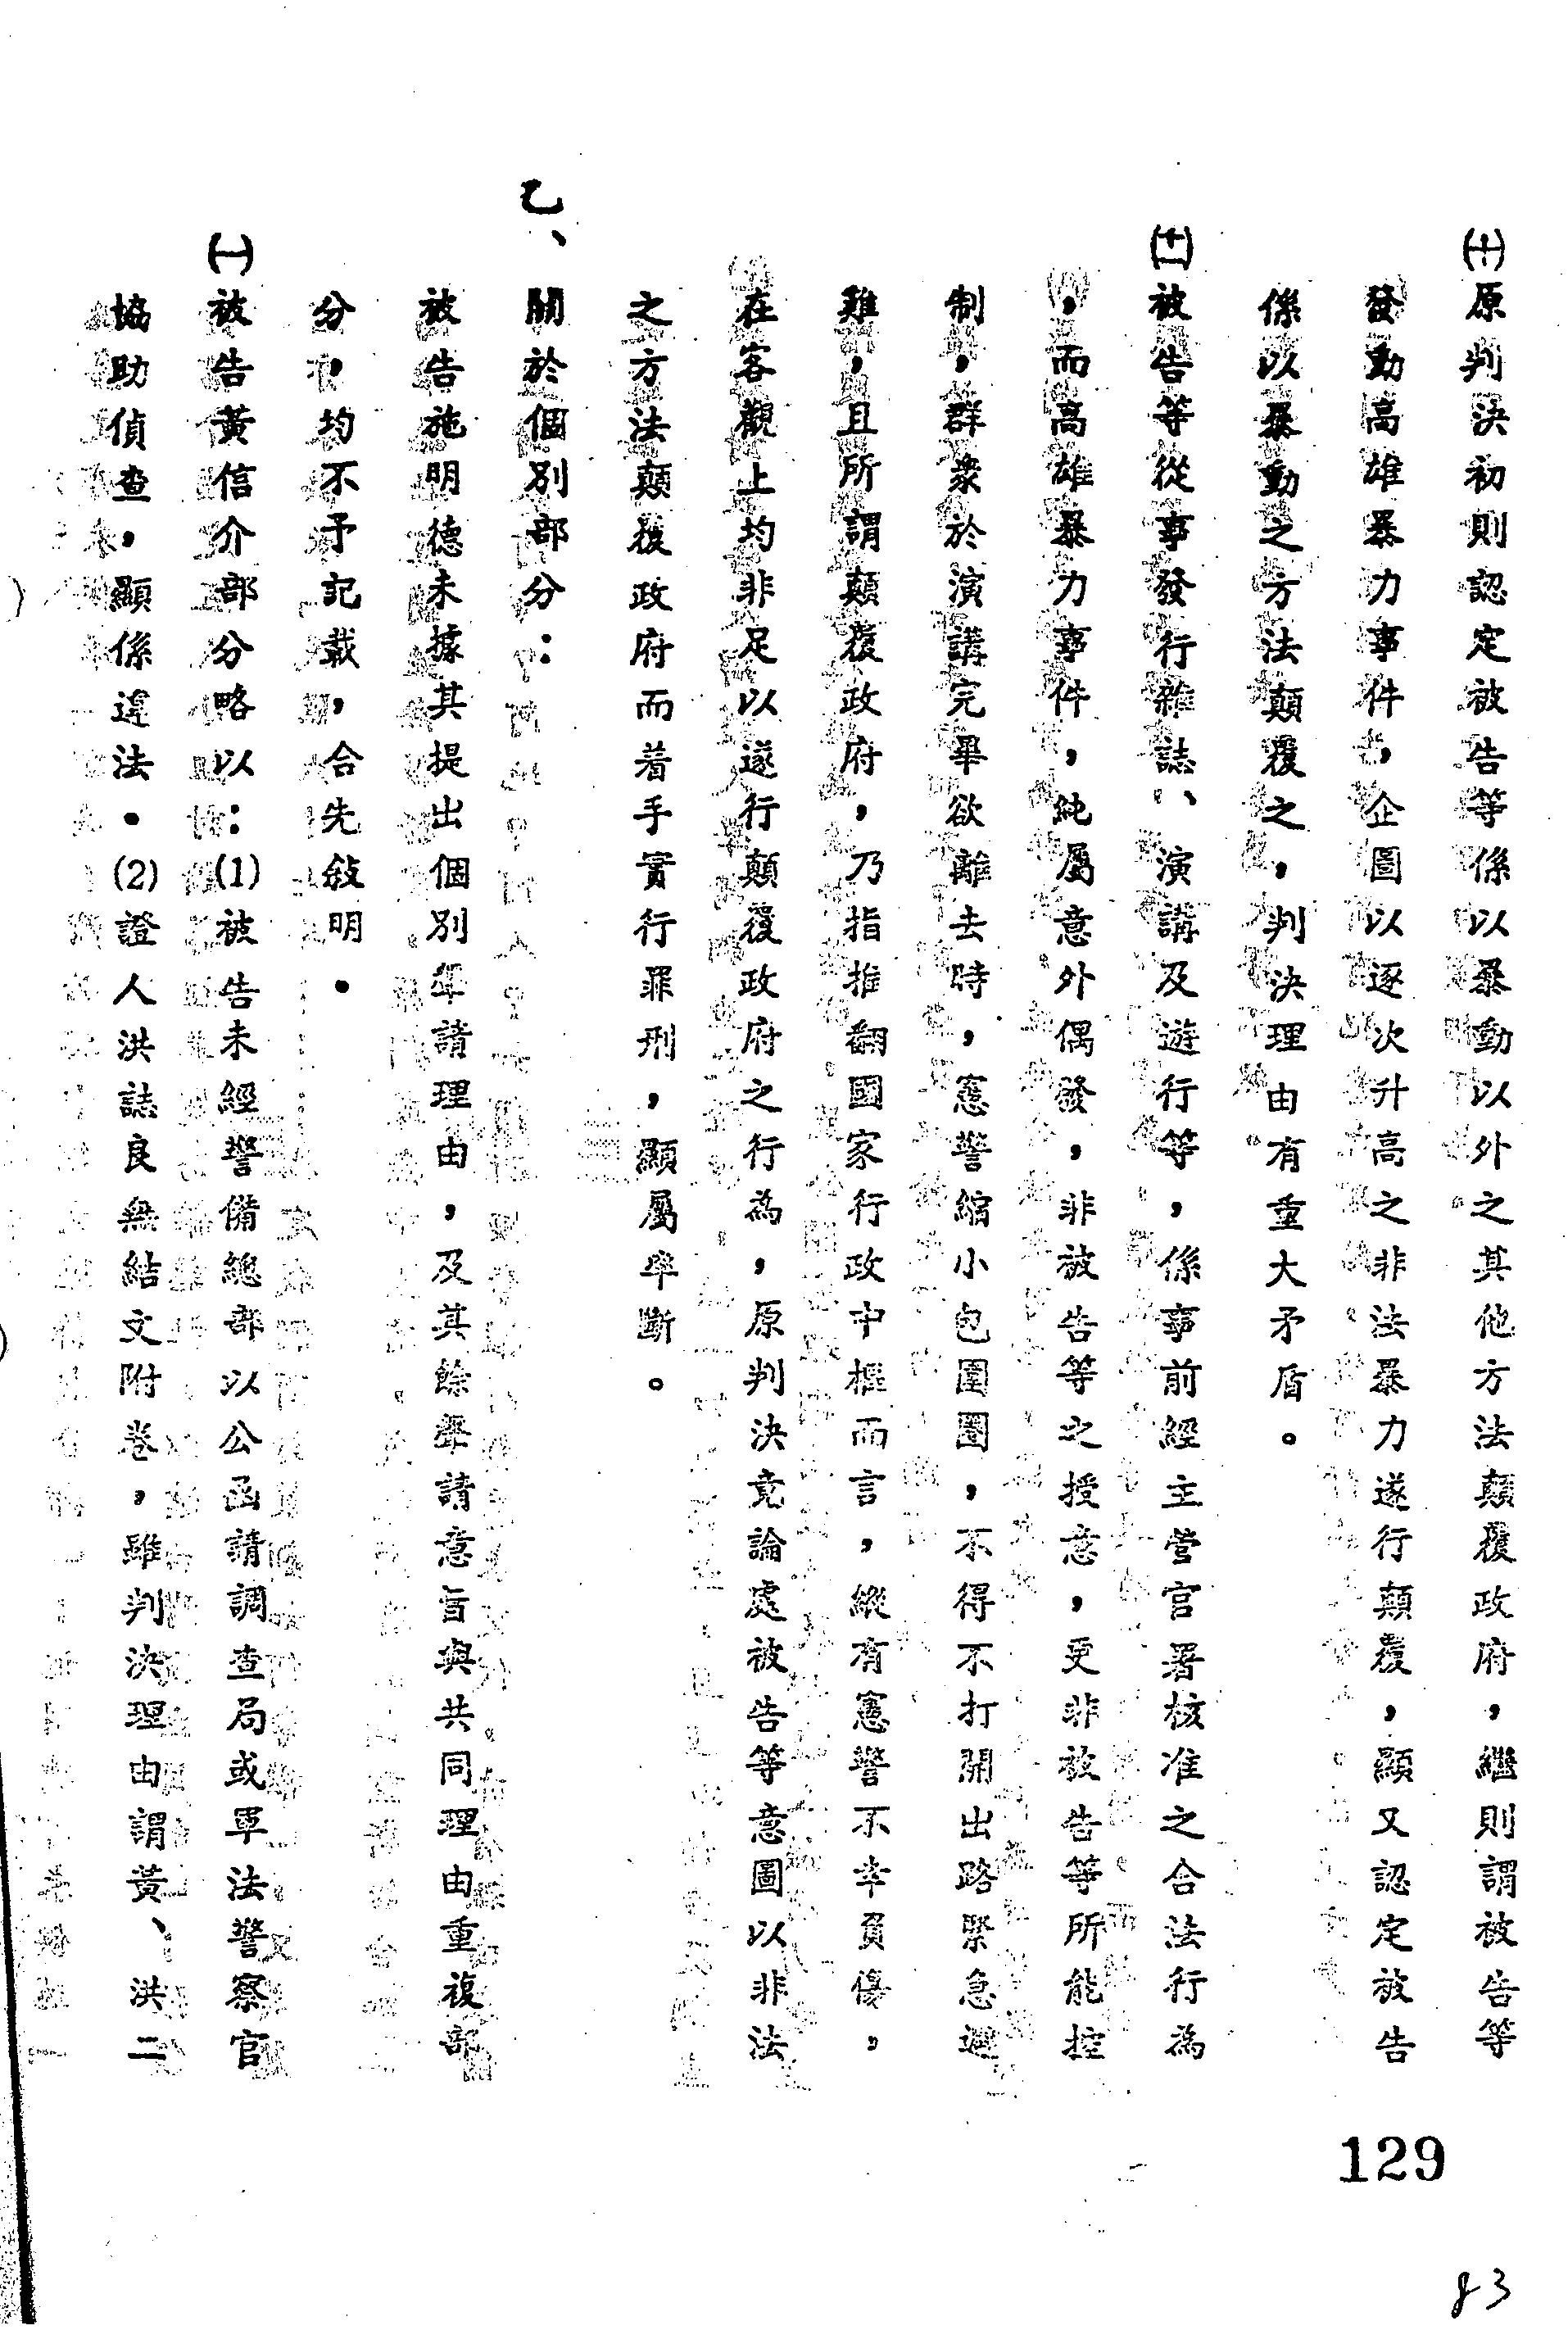 ㈩原判決初則認定被告等係以暴動以外之其他方法顛覆政府，繼則謂被告等
發動高雄暴力事件，企圖以逐次升高之非法暴力遂行顛覆，顯又認定被告
係以暴動之方法顛覆之，判決理由有重大矛盾。
(十一)被告等從事發行雜誌、演講及遊行等，係事前經主管官署核准之合法行為
，而高雄暴力事件，純屬意外偶發，非被告等之授意，更非被告等所能控
制，群衆於演講完畢欲離去時，憲警縮小包圍圈，不得不打開出路緊急避
難，且所謂顛覆政府，乃指推翻國家行政中樞而言，縱有憲警不幸負傷，
在客觀上均非足以遂行顛覆政府之行為，原判決竟論處被告等意圖以非法
之方法顛覆政府而着手實行罪刑，顯屬率斷。
乙、關於個別部分：
被告施明德未據其提出個別聲請理由，及其餘聲請意旨與共同理由重複部
分，均不予記載，合先敍明．
㈠被告黃信介部分略以：(1)被告未經警備總部以公函請調查局或軍法警察官
協助偵查，顯係違法．(2)證人洪誌良無結文附卷，雖判決理由謂黃、洪二
129
83